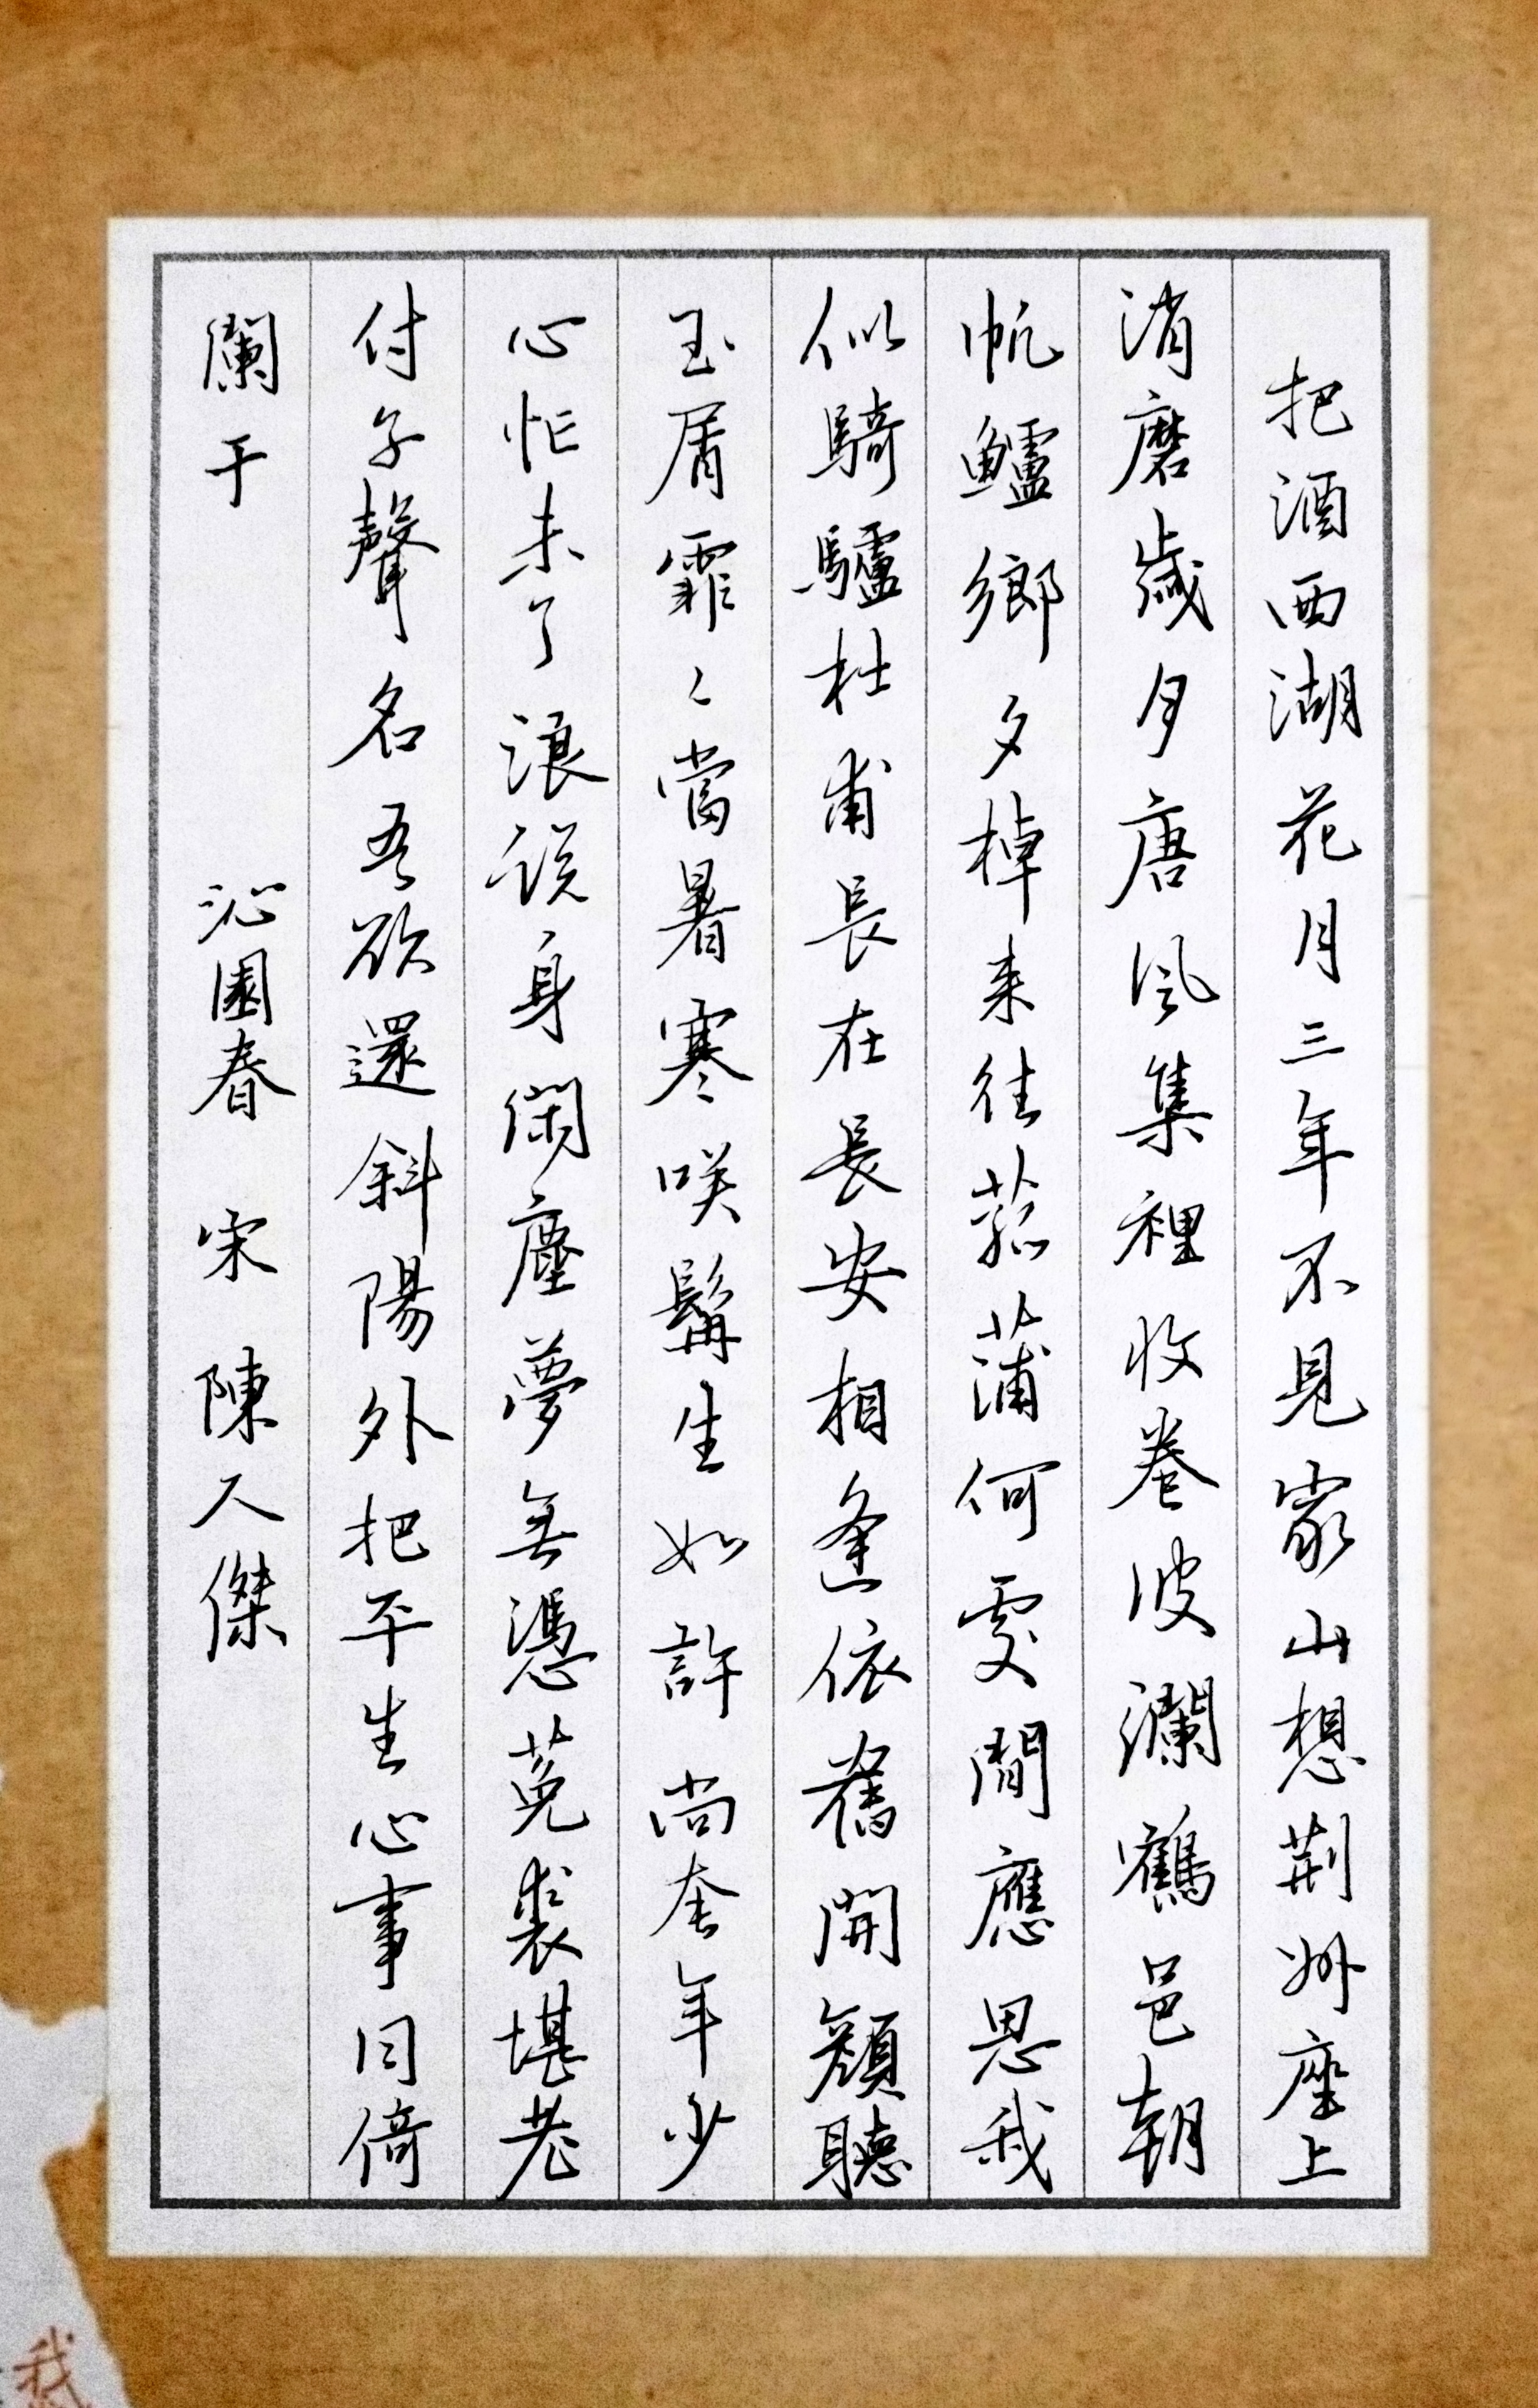 把酒西湖花月三年不見家山想荆州座上
消磨歲月唐風集裡收卷波瀾鶴邑朝
帆鱸鄉夕棹来往菰蒲何處間應思我
似騎驢杜甫長在長安相逢依舊開顏聽
玉屑霏々當暑寒咲髯生如許尚奎年少
心忙未了浪説身閑塵夢無憑菟裘堪老
付子聲名吾欲還斜陽外把平生心事同倚
闌干 沁園春 宋 陳人傑
我